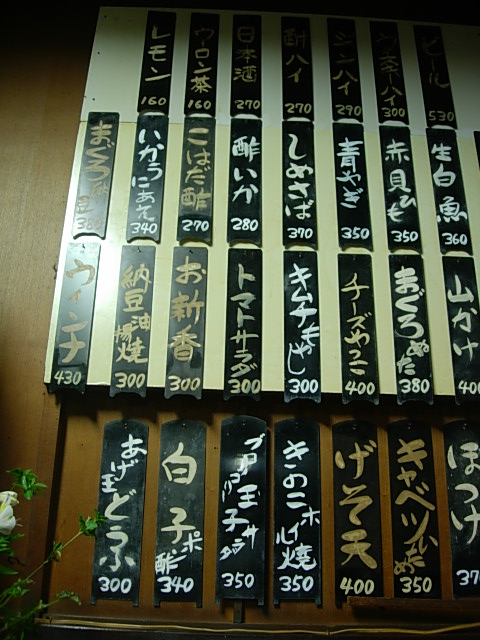 ビール 530
ウーロンハイ 300
シンハイ 290
酎ハイ 270
日本酒 270
ウーロン茶 160
レモン 160
生白魚 360
赤貝ひも 350
青やぎ 350
しめさば 370
酢いか 280
こはだ酢 270
いか
340
まぐろ
山かけ 40
まぐろぬた 380
チーズやっこ 400
キムチもやし 300
トマトサラダ 300
お新香 300
納豆油揚焼 300
ウィンナー 430
ほっけ 37
キャベツいため 350
げそ天 400
きのこホイル焼 350
玉子サラダ 350
白子ポン酢 340
あげ玉どうふ 300